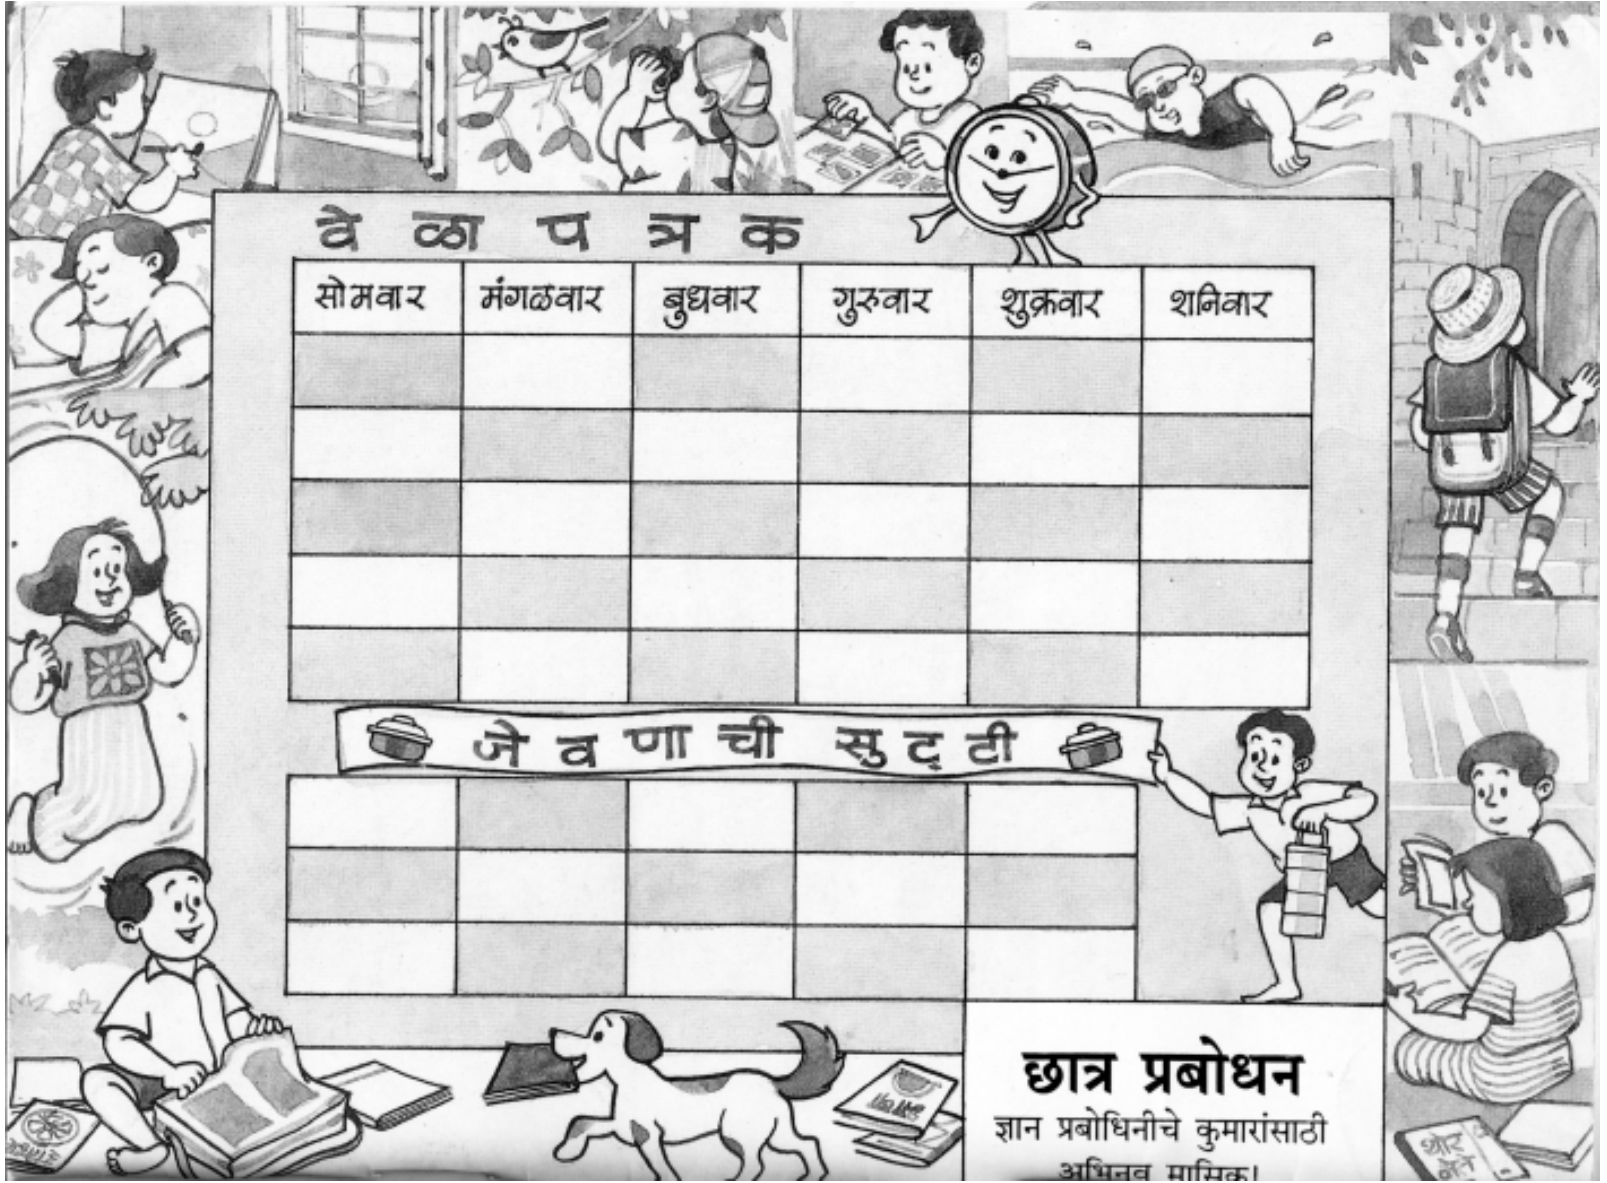 वेळापत्रक
सोमवार मंगळवार बुधवार गुरुवार शुक्रवार शनिवार
जेवणाची सुट्टी
छात्र प्रबोधन
ज्ञान प्रबोधिनीचे कुमारांसाठी
अभिनव मासिक!
थोर
नेते